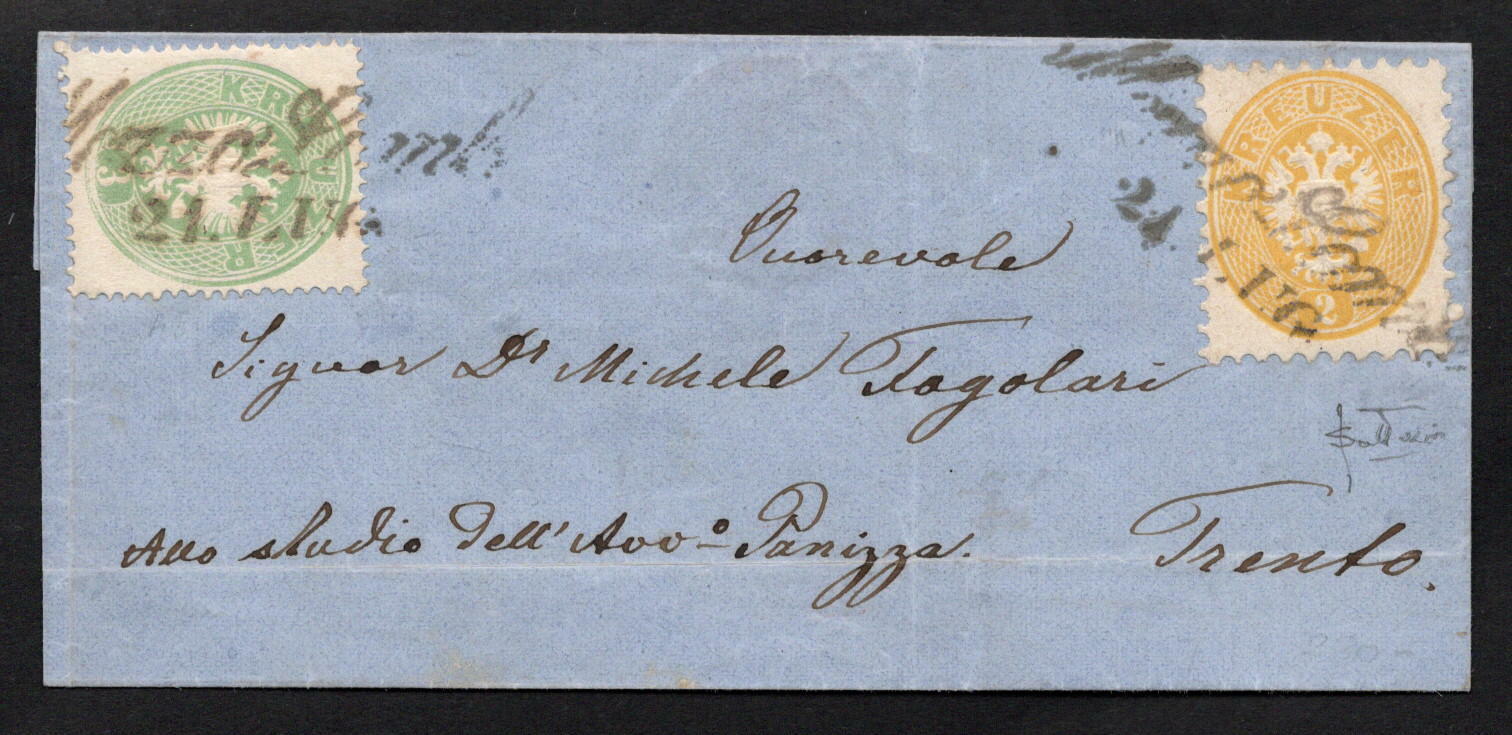 KREUZER
3
21. LUG
KREUZER
2
21 LUG.
Onorevole
Signor Dr Michele Fogolari
Allo studio dell'Avvo Panizza.
Trento.